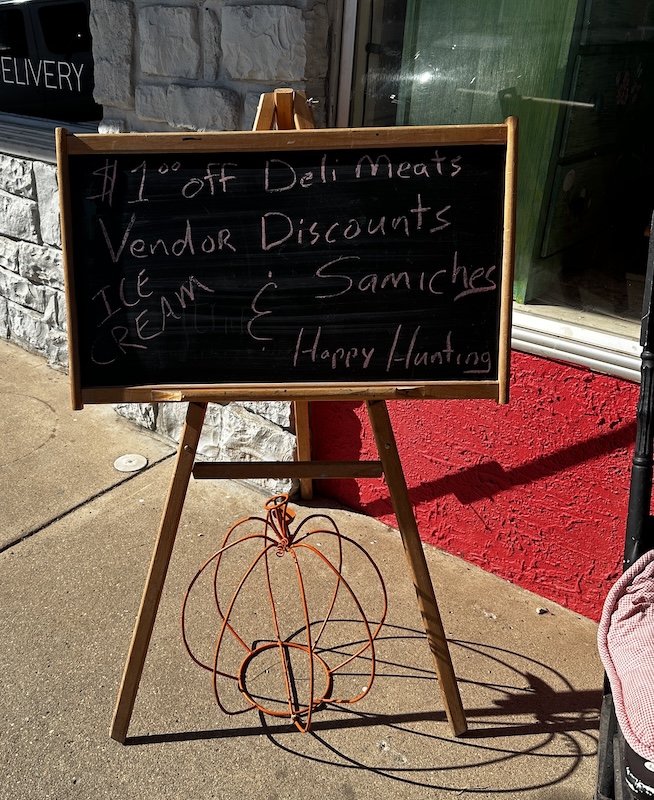 ELIVERY
$1⁰⁰ off Deli Meats
Vendor Discounts
ICE CREAM & Samiches
Happy Hunting